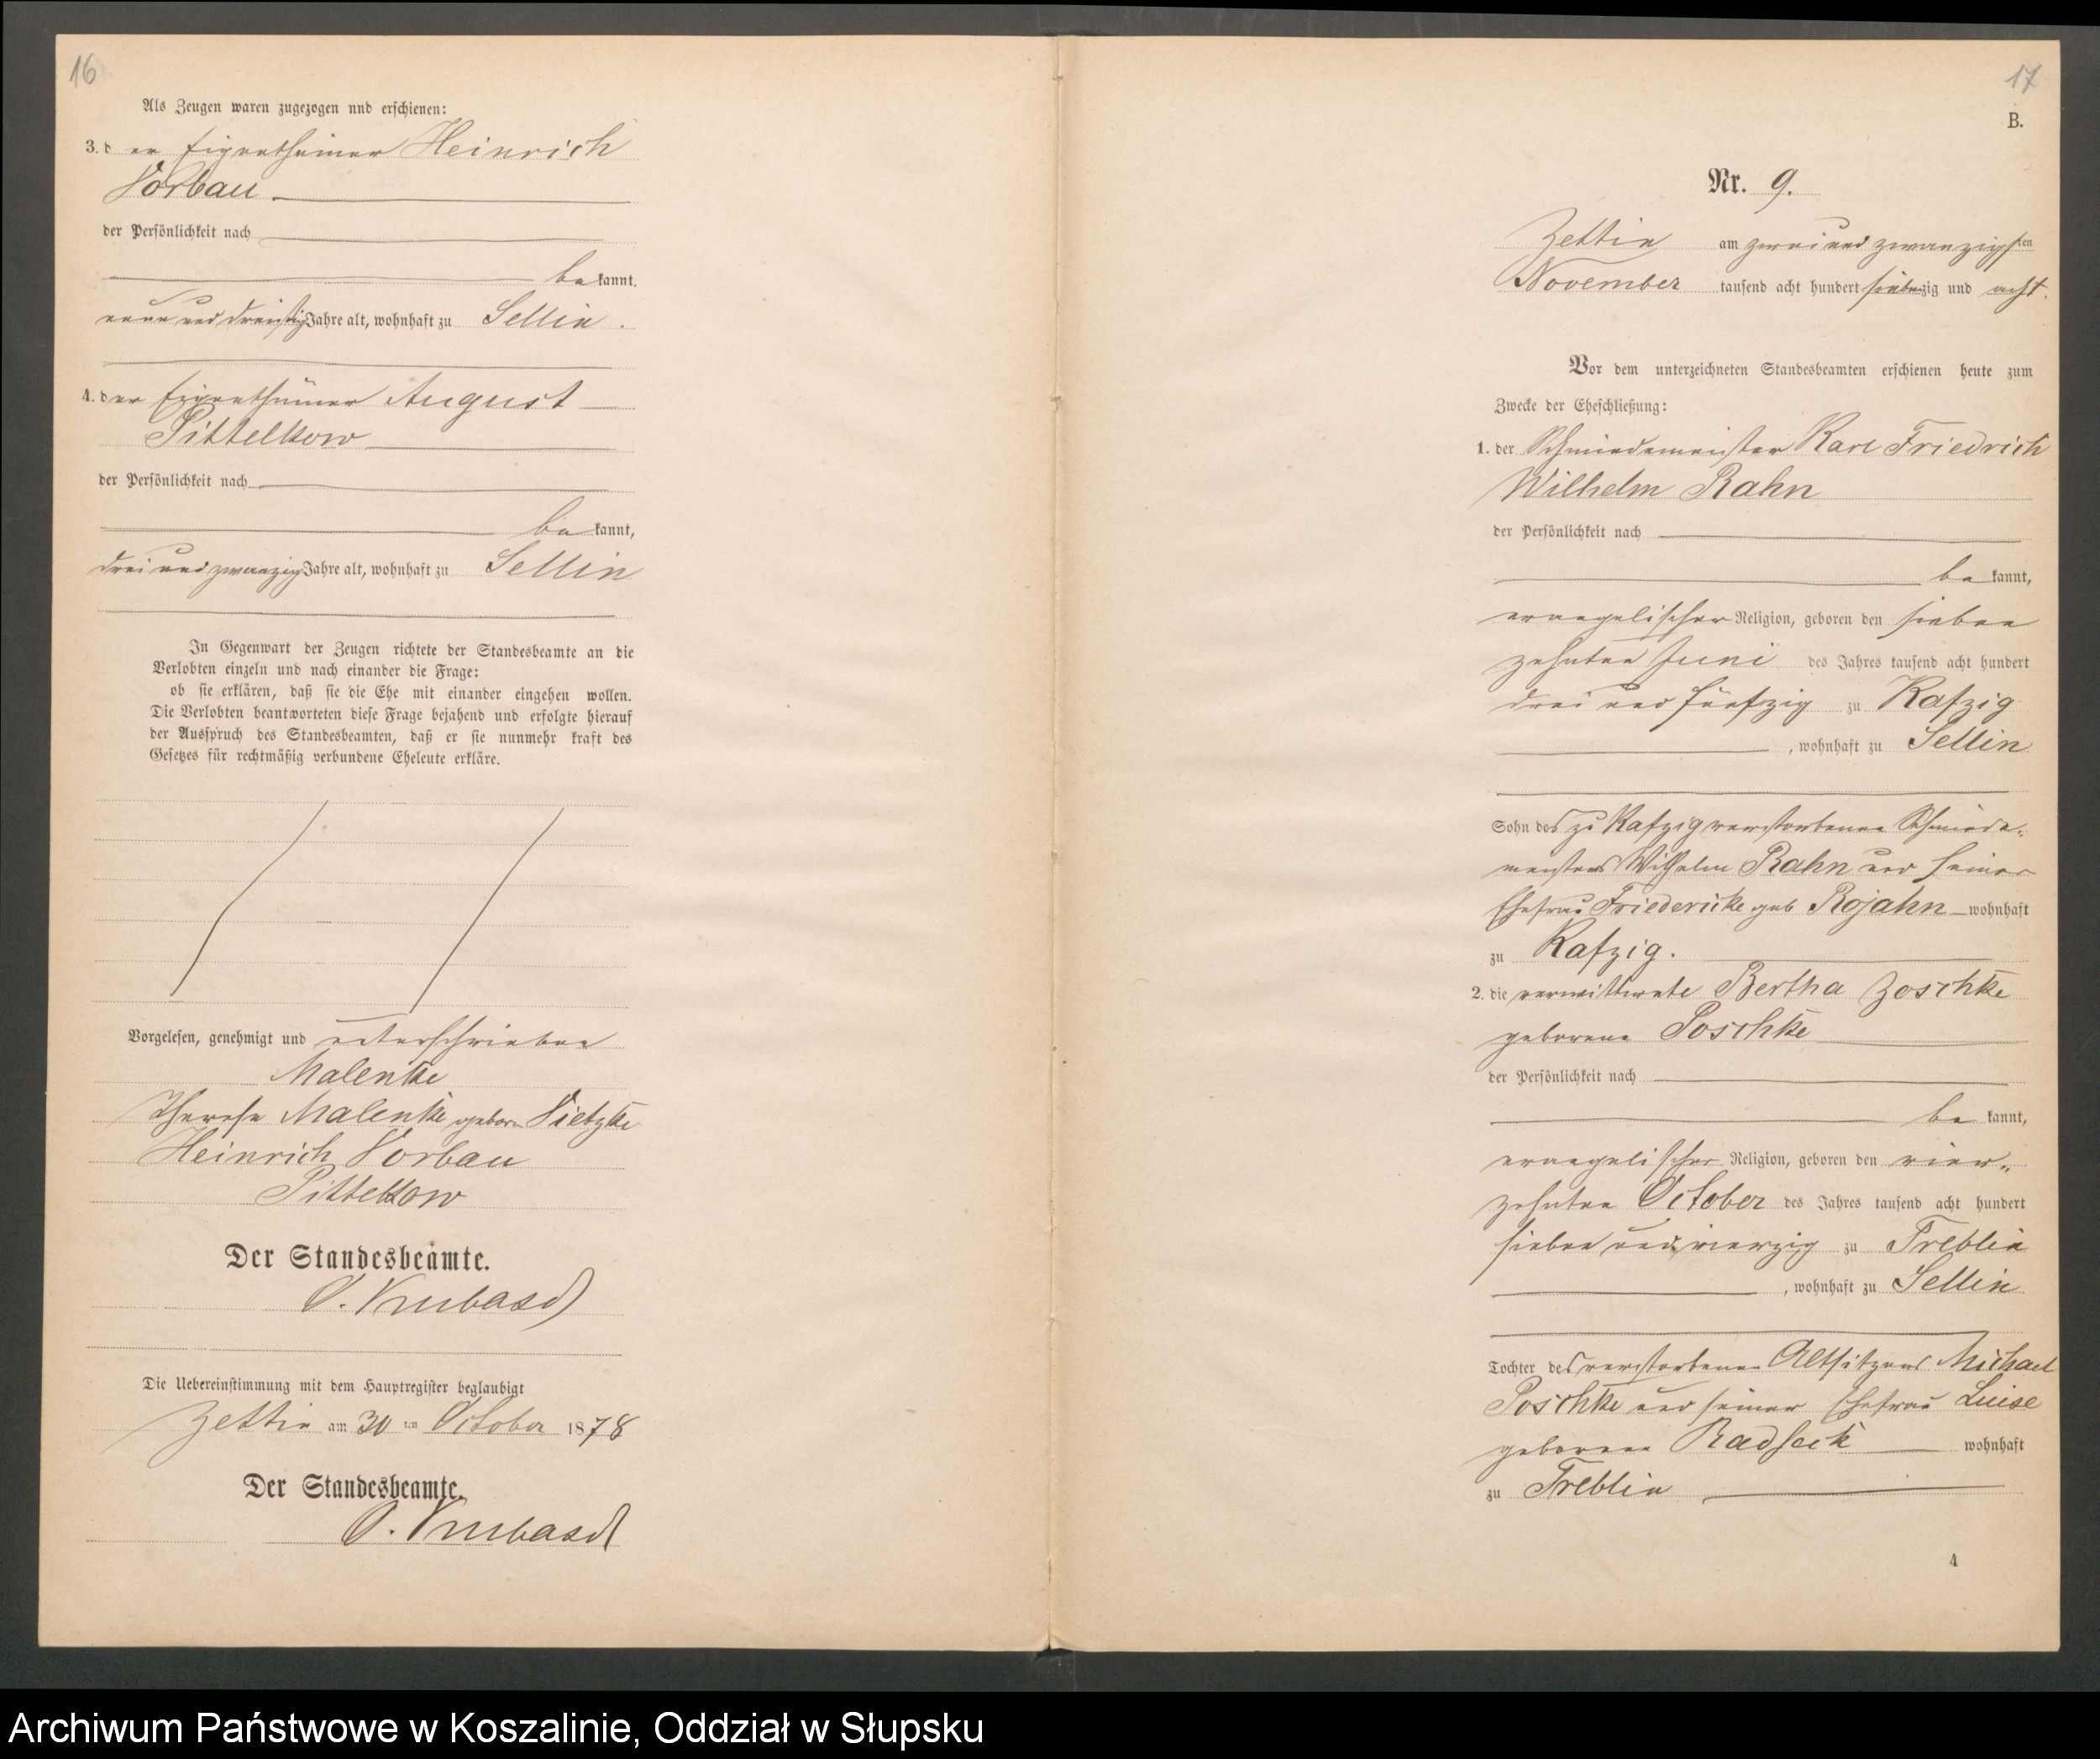 16
Als Zeugen waren zugezogen nnd erschienen:
3. der Eigenthümer Heinrich
Vorbau
der Persönlichkeit nach
bekannt,
neun und dreißig Jahre alt, wohnhaft zu Sellin.
4. der Eigenthümer August
Pittelkow
der Persönlichkeit nach
bekannt,
drei und zwanzig Jahre alt, wohnhaft zu Sellin
In Gegenwart der Zeugen richtete der Standesbeamte an die
Verlobten einzeln und nach einander die Frage:
ob sie erklären, daß sie die Ehe mit einander eingehen wollen.
Die Verlobten beantworteten diese Frage bejahend und erfolgte hierauf
der Ausspruch des Standesbeamten, daß er sie nunmehr kraft des
Gesetzes für rechtmäßig verbundene Eheleute erkläre.
Vorgelesen, genehmigt und unterschrieben
Malenke
Therese Malenke geborn Vietzke
Heinrich Vorbau
Pittelkow
Der Standesbeamte.
O. Krubasd
Die Uebereinstimmung mit dem Hauptregister beglaubigt
Zettin am 30 ten October 1878
Der Standesbeamte.
O. Krubasd
17
B.
Nr. 9.
Zettin am zwei und zwanzigsten
November tausend acht hundert siebenzig und acht.
Vor dem unterzeichneten Standesbeamten erschienen heute zum
Zwecke der Eheschließung:
1. der Schmiedemeister Karl Friedrich
Wilhelm Rahn
der Persönlichkeit nach
bekannt,
evangelischer Religion, geboren den sieben
zehnten Juni des Jahres tausend acht hundert
drei und fünfzig zu Kafzig
, wohnhaft zu Sellin
Sohn des zu Kafzig verstorbenen Schmiede-
meisters Wilhelm Rahn und seiner
Ehefrau Friedericke geb Rojahn wohnhaft
zu Kafzig.
2. die verwittwete Bertha Zoschke
geborene Poschke
der Persönlichkeit nach
bekannt,
evangelischer Religion, geboren den vier-
zehnten October des Jahres tausend acht hundert
sieben und vierzig zu Treblin
, wohnhaft zu Sellin
Tochter des verstorbenen Altsitzers Michael
Poschke und seiner Ehefrau Luise
geborene Radseck wohnhaft
zu Treblin
4
Archiwum Państwowe w Koszalinie, Oddział w Słupsku